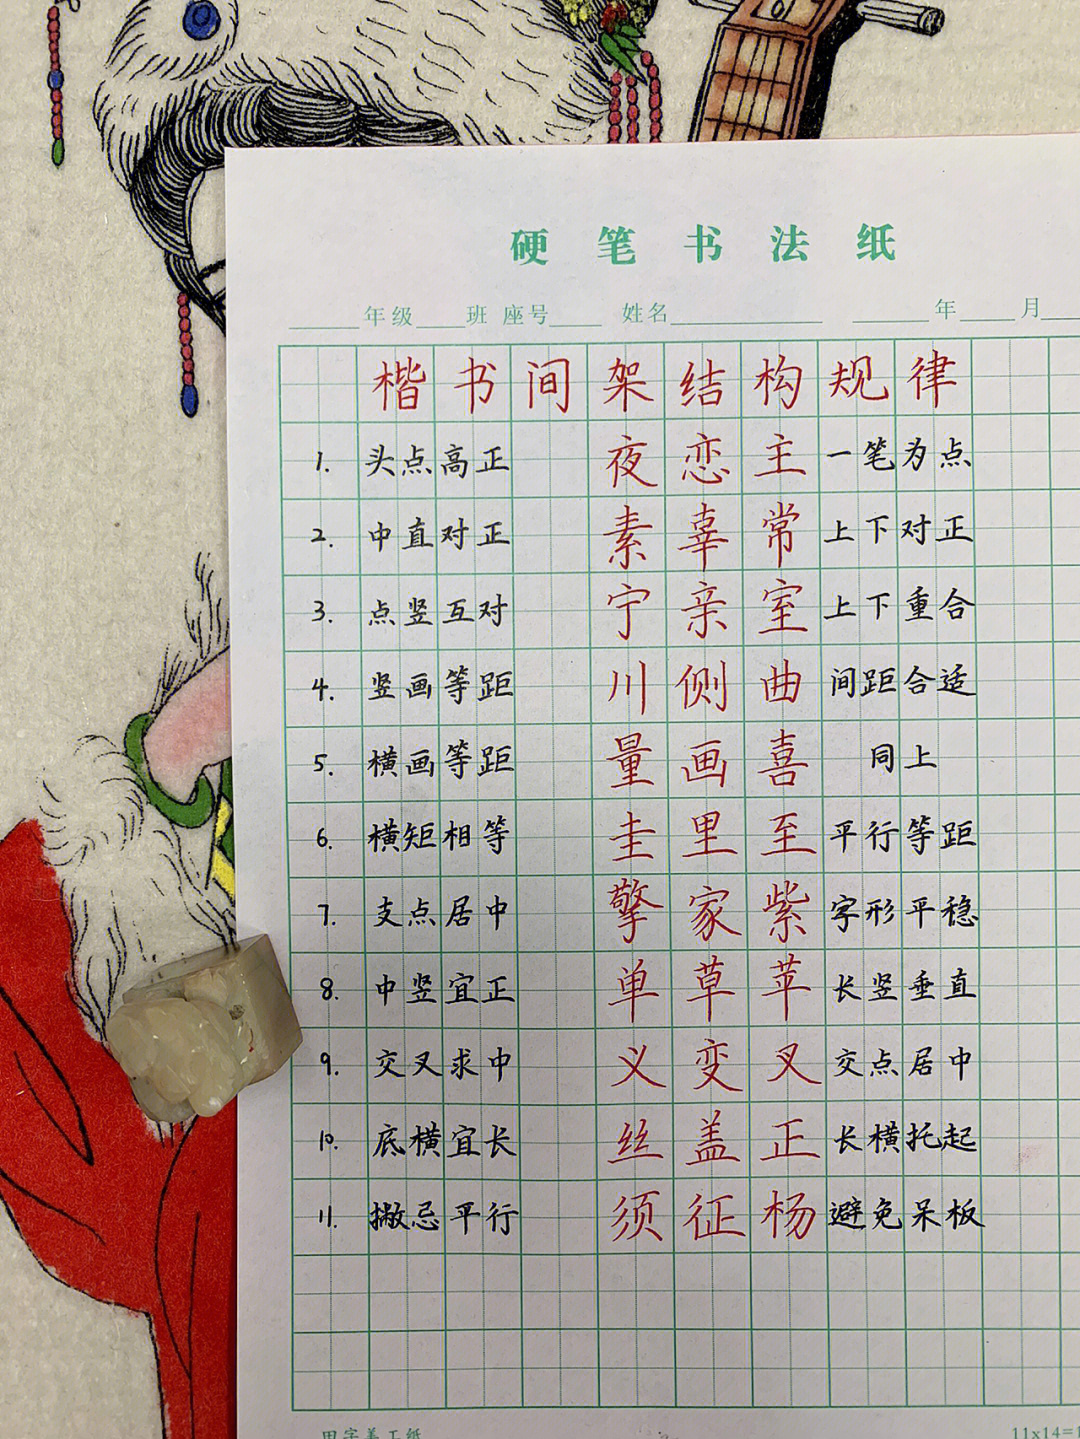 硬笔书法纸
年级 班 座号 姓名 年 月
楷书间架结构规律
1. 头点高正 夜恋主 一笔为点
2. 中直对正 素辜常 上下对正
3. 点竖互对 宁亲室 上下重合
4. 竖画等距 川侧曲 间距合适
5. 横画等距 量画喜 同上
6. 横矩相等 圭里至 平行等距
7. 支点居中 擎家紫 字形平稳
8. 中竖宜正 单草苹 长竖垂直
9. 交叉求中 义变叉 交点居中
10. 底横宜长 丝盖正 长横托起
11. 撇忌平行 须征杨 避免呆板
田字美工纸 11x14=1